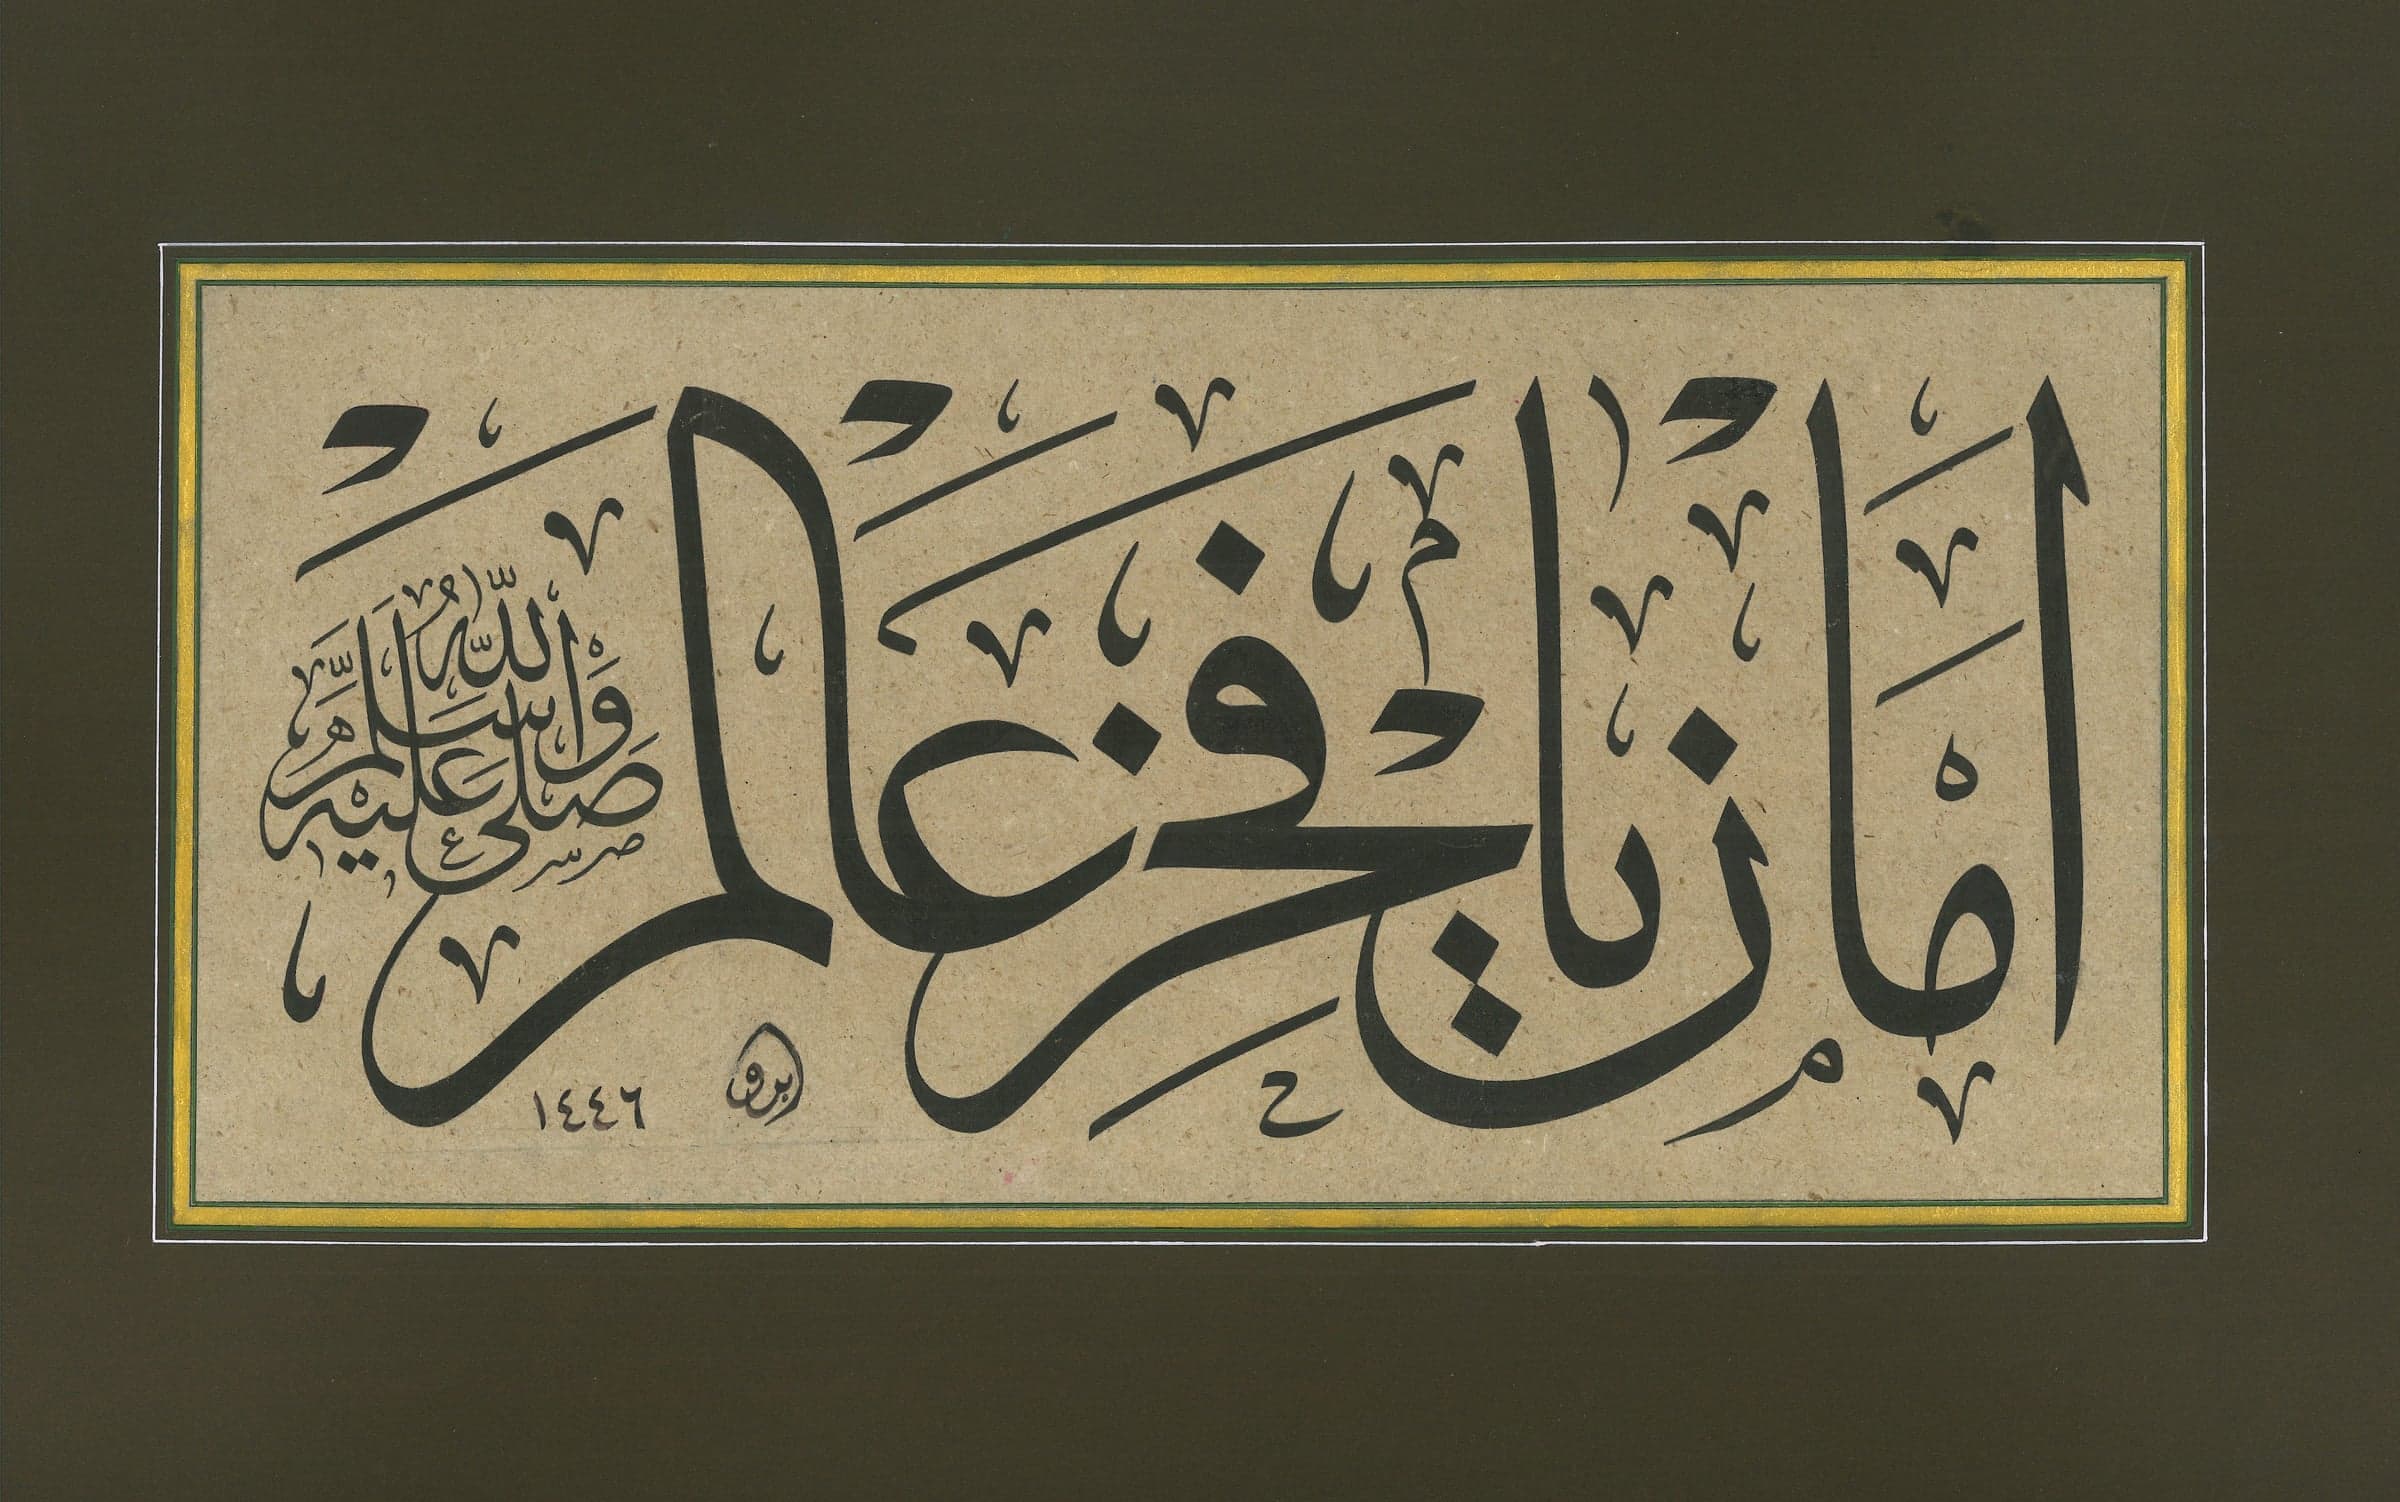 امان يا فخر عالم
صلى الله عليه وسلم
١٤٤٦